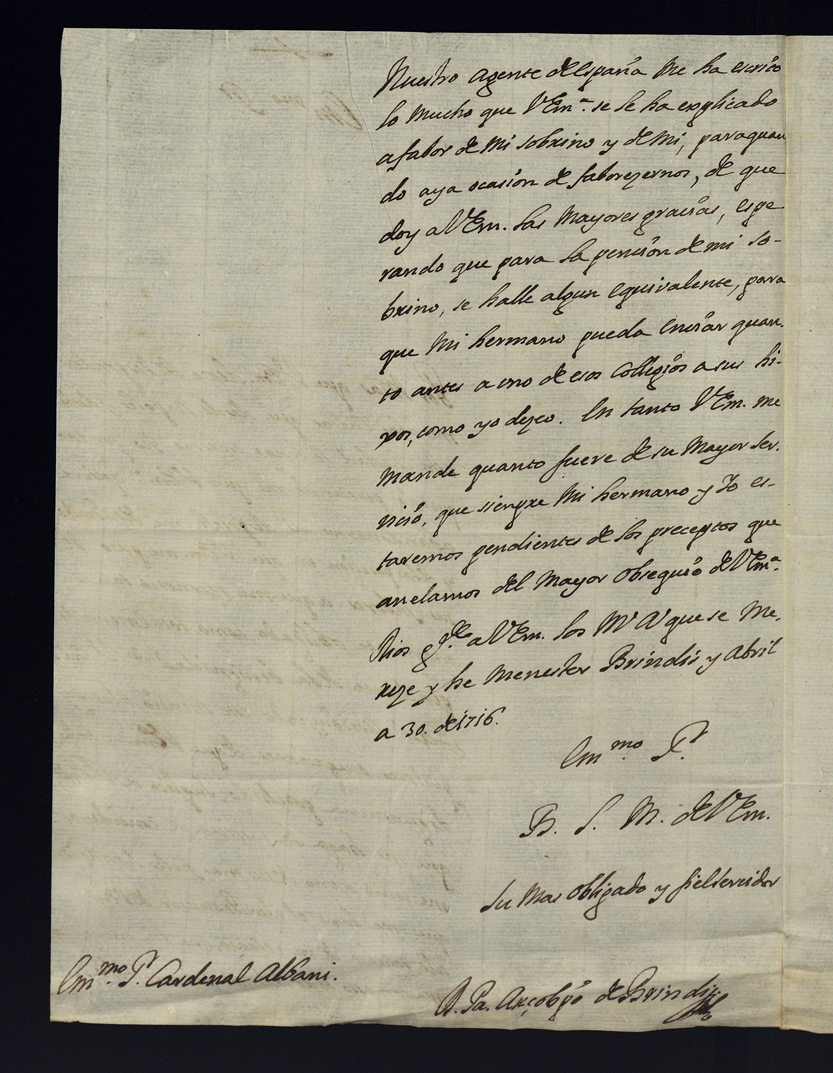 Nuestro Agente de españa Me ha escrito
lo Mucho que VEm.ª se le ha explicado
a fabor de Mi sobrino y de Mi, para quan
do aya ocasion de faborezernos, de que
doy a VEm. las Mayores gracias, espe-
rando que para la pencion de mi so-
brino, se halle algun equivalente, para
que Mi hermano pueda enviar quan-
to antes a uno de esos Collegios a sus hi-
xos, como yo dezeo. En tanto VEm. me
Mande quanto fuere de su Mayor ser-
vicio, que siempre Mi hermano y Yo es-
taremos pendientes de los preceptos que
anelamos del Mayor Obsequio de VEm.ª
Dios g.de a VEm. los M.s A.s que se Me-
reze y he Menester Brindis y Abril
a 30. de 1716.
Em.mo S.r
B. L. M. de VEm.
su Mas Obligado y fiel servidor
Em.mo S.r Cardenal Albani.
Arçobpo de Brindis